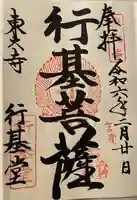 奉拝
令和六年二月廿日
行基菩薩
東大寺
行基堂